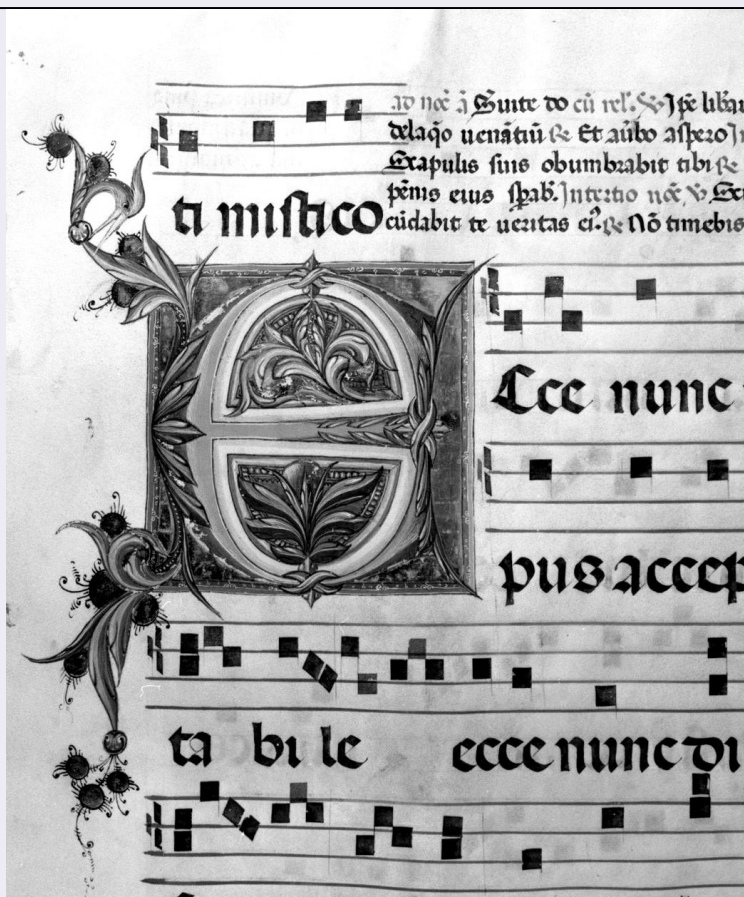 ad noc̄ a᷑ Suite do cū rel᷑. ℣ Ip̄e lib̄au
de laq̄o uenātiū ℟ Et aūbo aspero In
Scapulis suis obumbrabit tibi ℟
pēnis eius sp̄ab. In tertio noc̄. ℣ Scu
cūdabit te ueritas ei᷑. ℟ Nō timebis
ti mistico
Ecce nunc
pus accep
ta bi le ecce nunc di